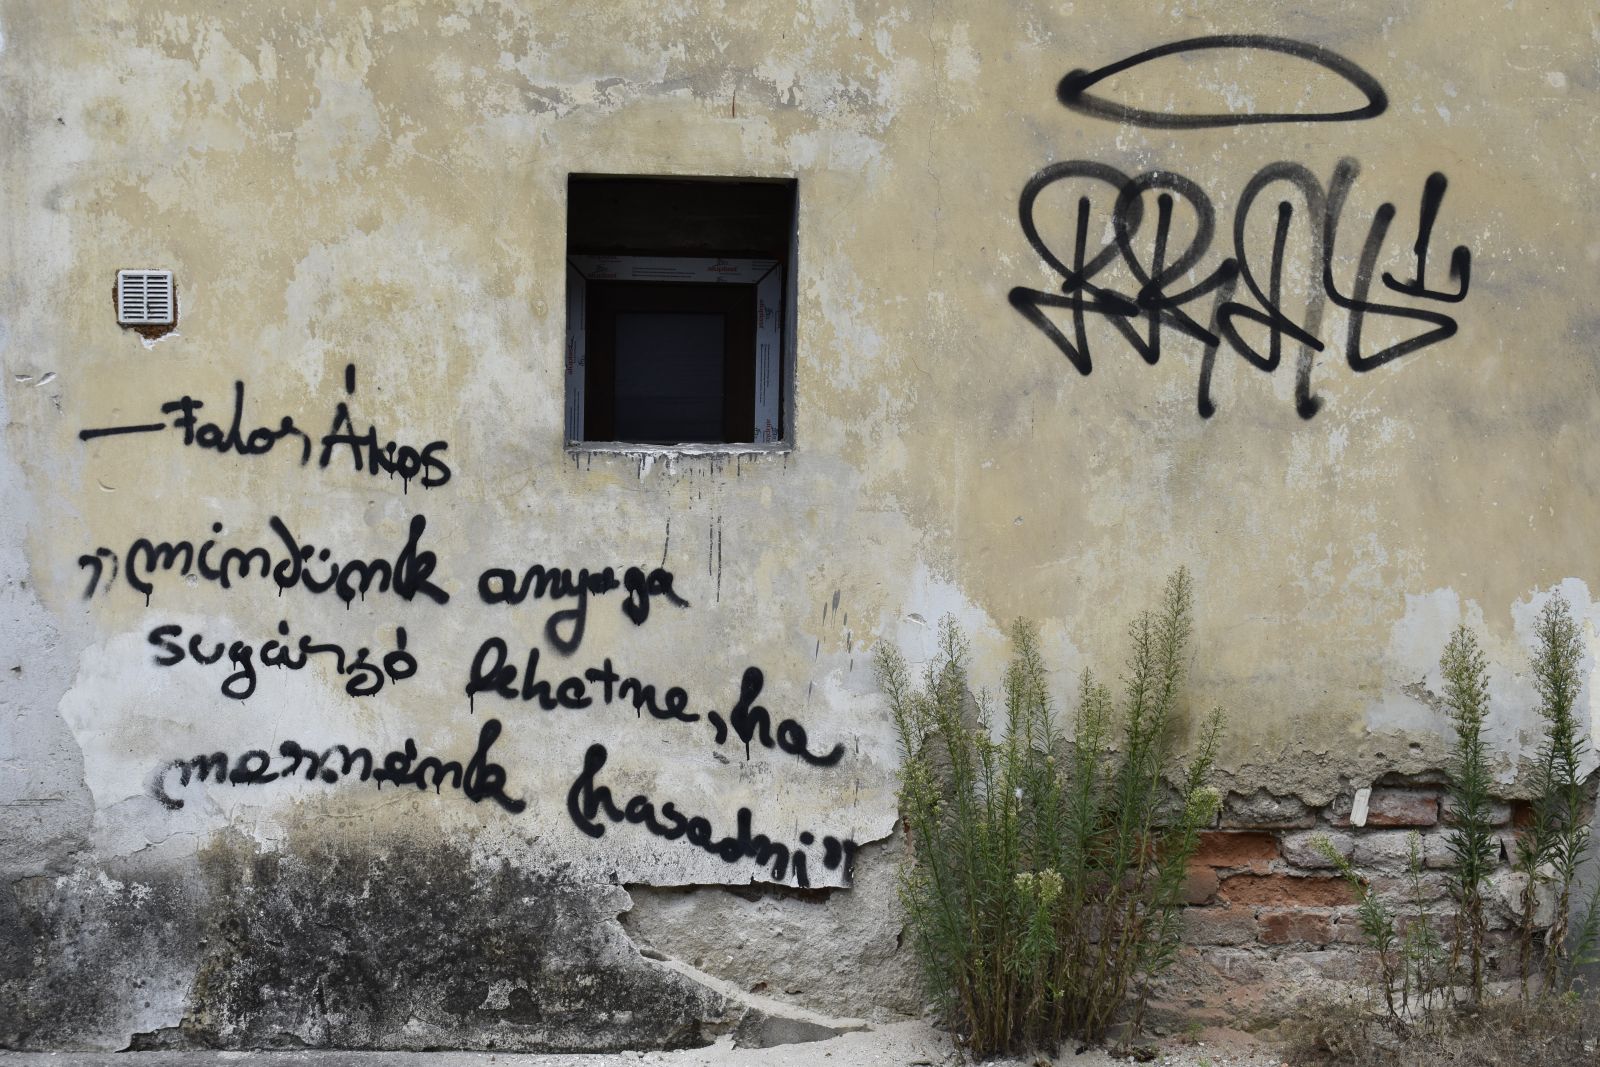 — Falor Ákos
"mindünk anyaga
sugárzó lehetne, ha
mernénk hasadni"
aluplast